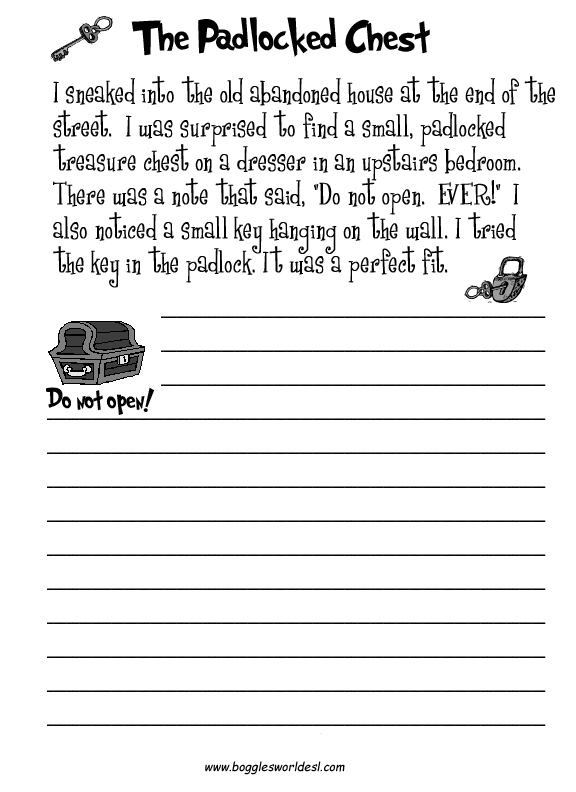 The Padlocked Chest
I sneaked into the old abandoned house at the end of the
street. I was surprised to find a small, padlocked
treasure chest on a dresser in an upstairs bedroom.
There was a note that said, "Do not open. EVER!" I
also noticed a small key hanging on the wall. I tried
the key in the padlock. It was a perfect fit.
Do not open!
www.bogglesworldesl.com